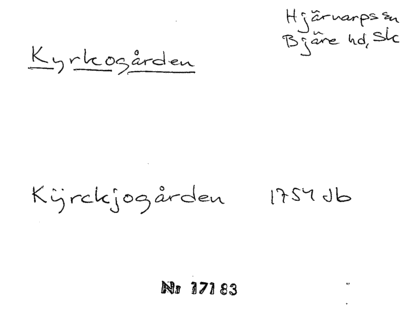 Hjärnarps sn
Bjäre hd, Sk
Kyrkogården
Kÿrckjogården 1754 Jb
Nr 17183